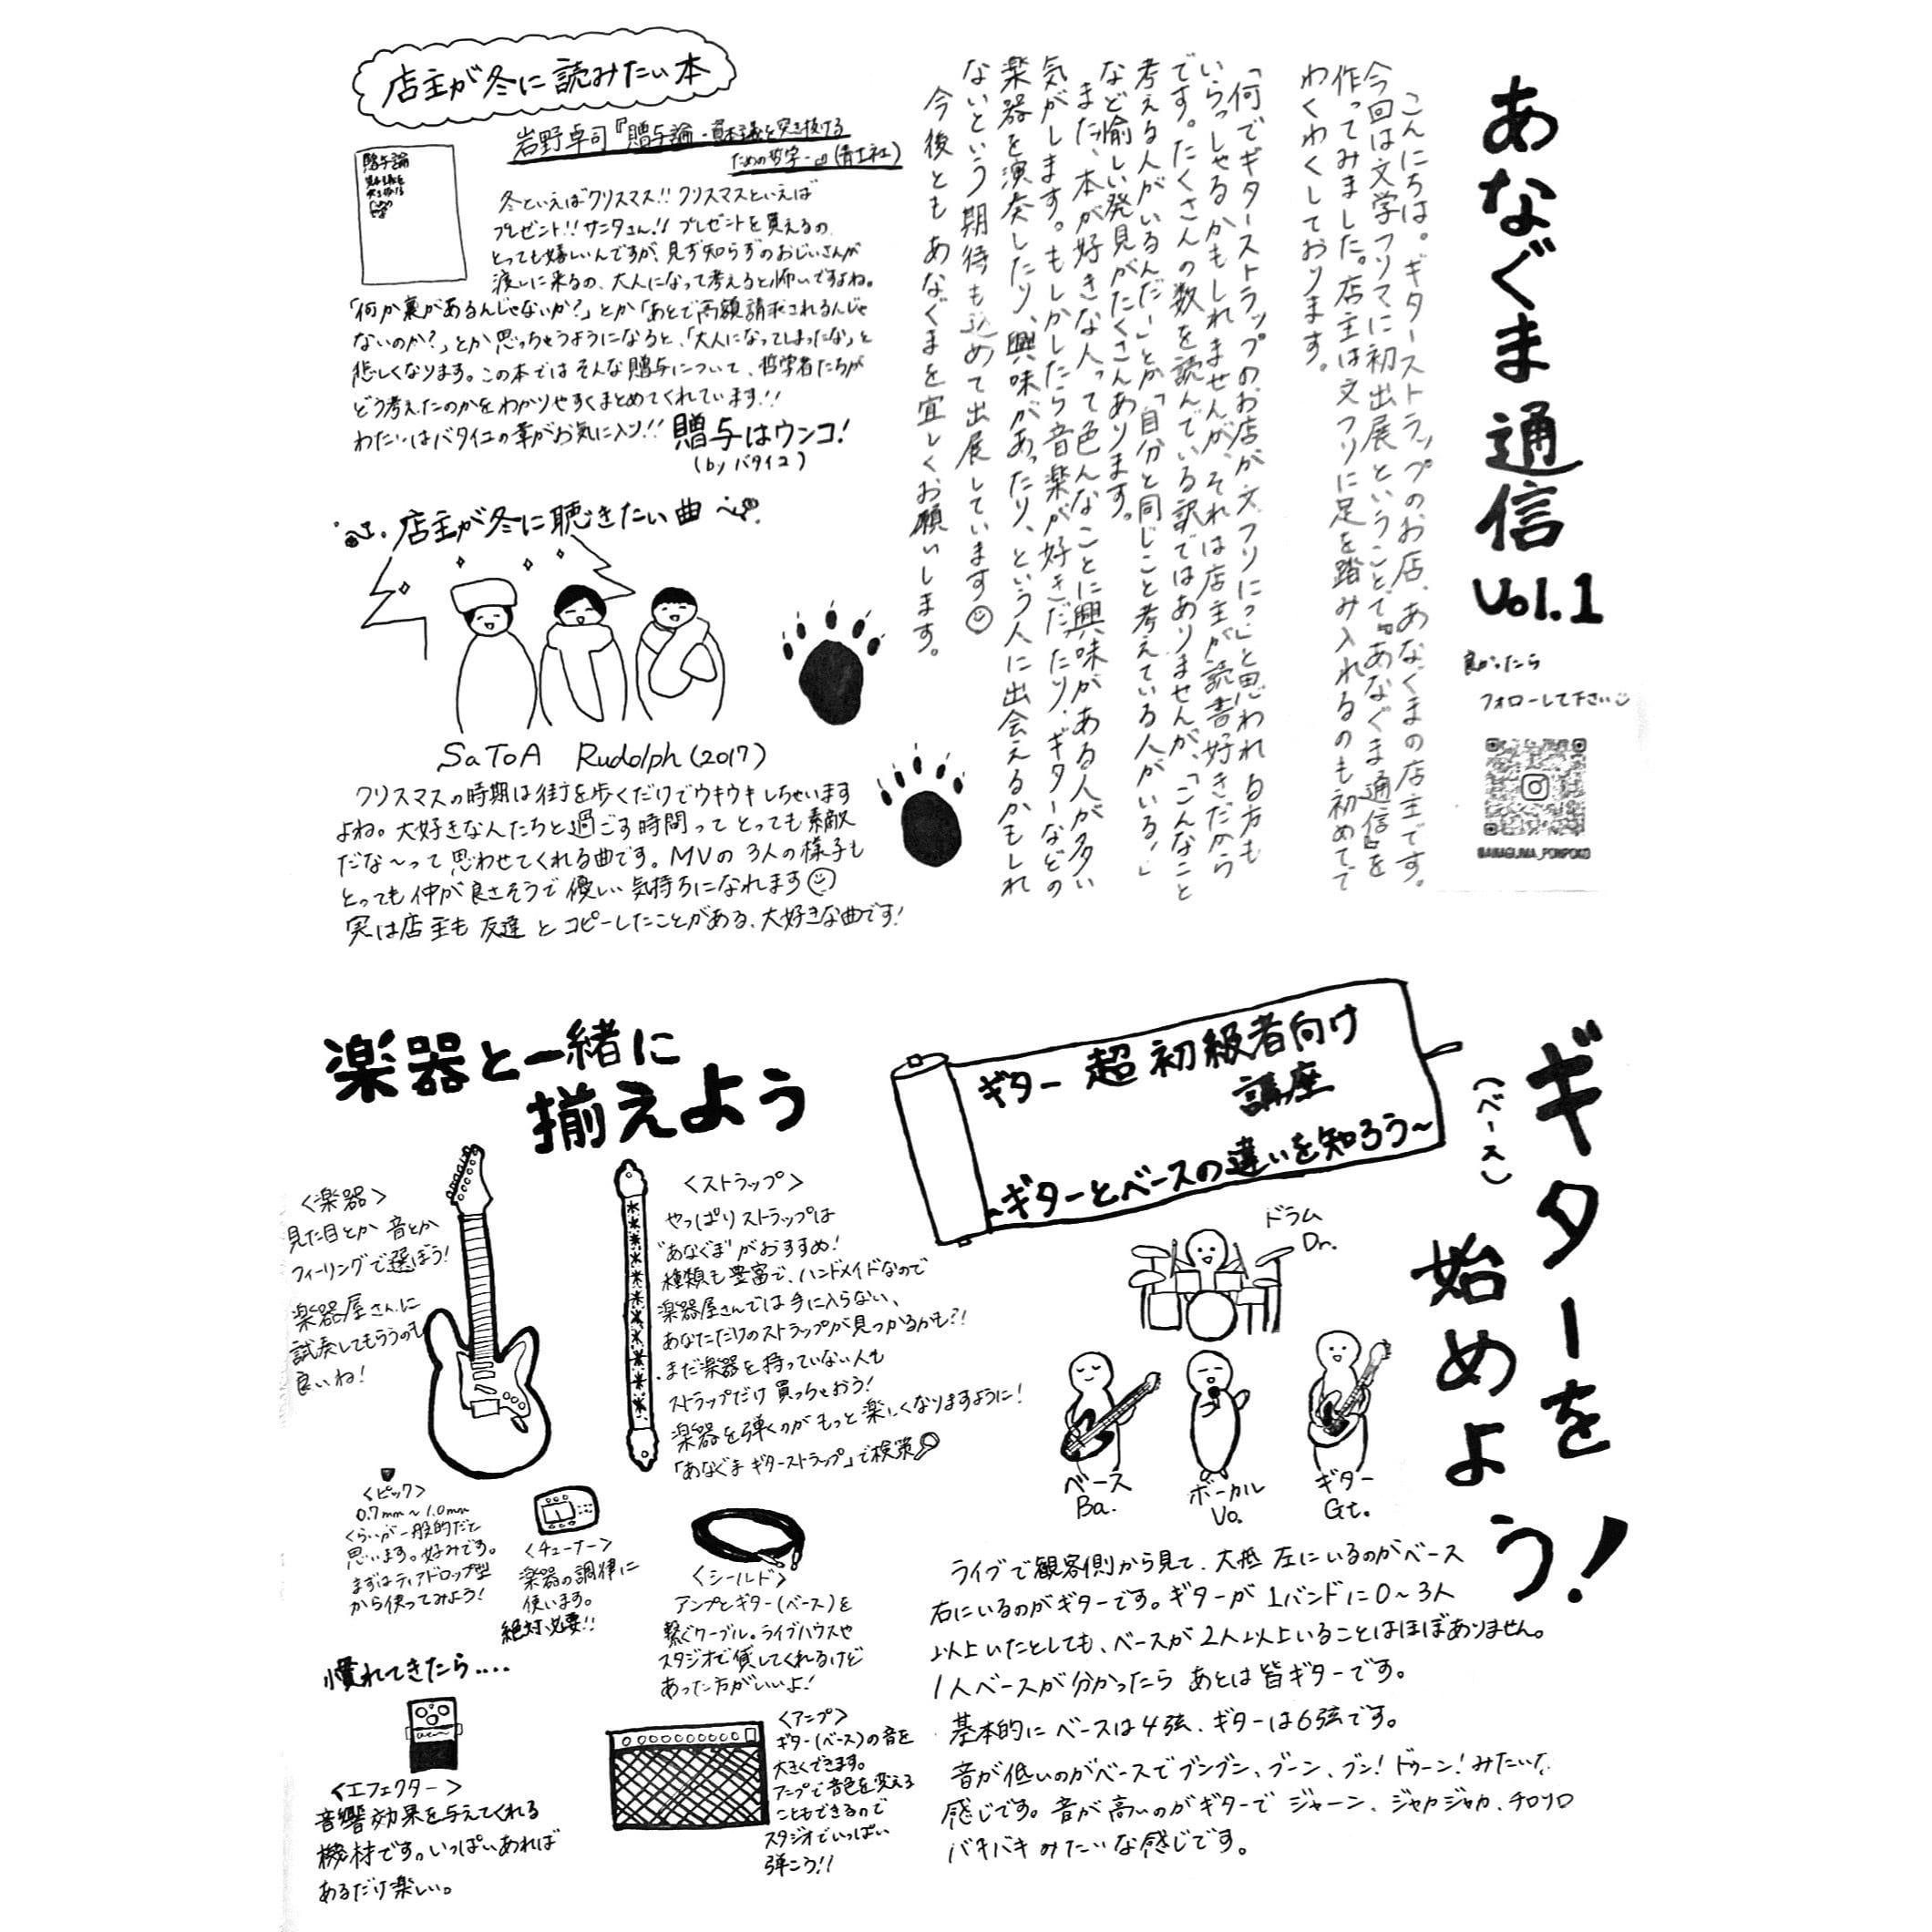 あなぐま通信 Vol.1
良かったら
フォローして下さい
@ANAGUMA_PONPOKO
こんにちは。ギターストラップのお店、あなぐまの店主です。
今回は文学フリマに初出展ということで『あなぐま通信』を
作ってみました。店主は文フリに足を踏み入れるのも初めてで
わくわくしております。
「何でギターストラップのお店が文フリに?」と思われる方も
いらっしゃるかもしれませんが、それは店主が読書好きだから
です。たくさんの数を読んでいる訳ではありませんが、「こんなこと
考える人がいるんだー」とか「自分と同じこと考えている人がいる!」
など愉しい発見がたくさんあります。
また、本が好きな人って色んなことに興味がある人が多い
気がします。もしかしたら音楽が好きだったり、ギターなどの
楽器を演奏したり、興味があったり、という人に出会えるかもしれ
ないという期待も込めて出展しています☺
今後ともあなぐまを宜しくお願いします。
店主が冬に読みたい本
岩野卓司『贈与論 -資本主義を突き抜ける
ための哲学-』(青土社)
贈与論
冬といえばクリスマス!!クリスマスといえば
プレゼント!!サンタさん!!プレゼントを貰えるの、
とっても嬉しいんですが、見ず知らずのおじいさんが
渡しに来るの、大人になって考えると怖いですよね。
「何か裏があるんじゃないか?」とか「あとで高額請求されるんじゃ
ないのか?」とか思っちゃうようになると、「大人になってしまったな」と
悲しくなります。この本ではそんな贈与について、哲学者たちが
どう考えたのかをわかりやすくまとめてくれています!!
わたしはバタイユの章がお気に入り!!贈与はウンコ!
(by バタイユ)
店主が冬に聴きたい曲
SaToA Rudolph(2017)
クリスマスの時期は街を歩くだけでウキウキしちゃいます
よね。大好きな人たちと過ごす時間ってとっても素敵
だな〜って思わせてくれる曲です。MVの3人の様子も
とっても仲が良さそうで優しい気持ちになれます☺
実は店主も友達とコピーしたことがある、大好きな曲です!
ギターを
(ベース)
始めよう!
ギター超初級者向け
講座
~ギターとベースの違いを知ろう~
ドラム
Dr.
ベース
Ba.
ボーカル
Vo.
ギター
Gt.
ライブで観客側から見て、大抵左にいるのがベース
右にいるのがギターです。ギターが1バンドに0〜3人
以上いたとしても、ベースが2人以上いることはほぼありません。
1人ベースが分かったらあとは皆ギターです。
基本的にベースは4弦、ギターは6弦です。
音が低いのがベースでブンブン、ブーン、ブン!ドゥーン!みたいな
感じです。音が高いのがギターでジャーン、ジャカジャカ、チロリロ
バキバキみたいな感じです。
楽器と一緒に
揃えよう
<楽器>
見た目とか音とか
フィーリングで選ぼう!
楽器屋さんに
試奏してもらうのも
良いね!
<ストラップ>
やっぱりストラップは
"あなぐま"がおすすめ!
種類も豊富で、ハンドメイドなので
楽器屋さんでは手に入らない、
あなただけのストラップが見つかるかも?!
まだ楽器を持っていない人も
ストラップだけ買っちゃおう!
楽器を弾くのがもっと楽しくなりますように!
「あなぐま ギターストラップ」で検索
<ピック>
0.7mm〜1.0mm
くらいが一般的だと
思います。好みです。
まずはティアドロップ型
から使ってみよう!
<チューナー>
楽器の調律に
使います。
絶対必要!!
<シールド>
アンプとギター(ベース)を
繋ぐケーブル。ライブハウスや
スタジオで貸してくれるけど
あった方がいいよ!
慣れてきたら....
<エフェクター>
音響効果を与えてくれる
機材です。いっぱいあれば
あるだけ楽しい。
<アンプ>
ギター(ベース)の音を
大きくできます。
アンプで音色を変える
こともできるので
スタジオでいっぱい
弾こう!!